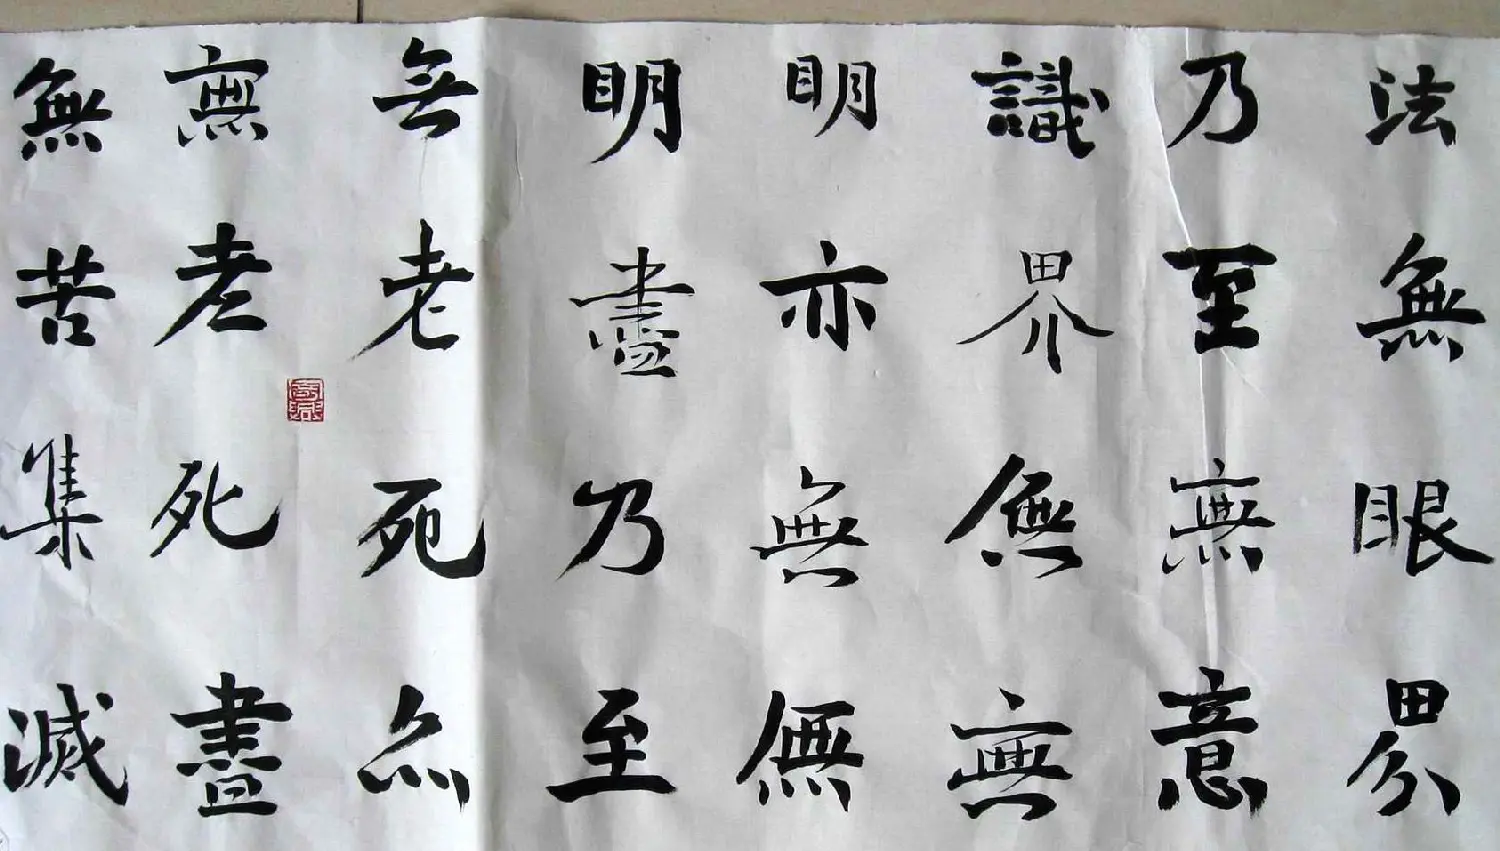 法無眼界
乃至無意
識界無無
明亦無無
明盡乃至
無老死亦
無老死盡
無苦集滅